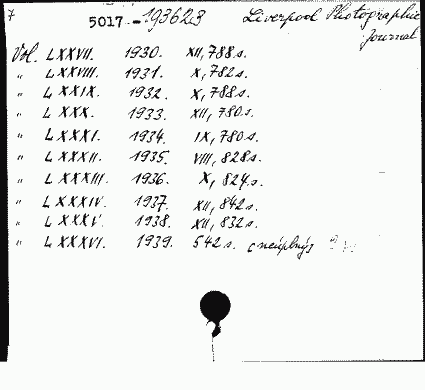 7 5017.-193623 Liverpool Photographic
Journal
Vol. LXXVII. 1930. XII, 788 s.
" LXXVIII. 1931. X, 782 s.
" LXXIX. 1932. X, 788 s.
" LXXX. 1933. XII, 780 s.
" LXXXI. 1934. IX, 780 s.
" LXXXII. 1935. VIII, 828 s.
" LXXXIII. 1936. X, 824 s.
" LXXXIV. 1937. XII, 842 s.
" LXXXV. 1938. XII, 832 s.
" LXXXVI. 1939. 542 s. (neúplný)